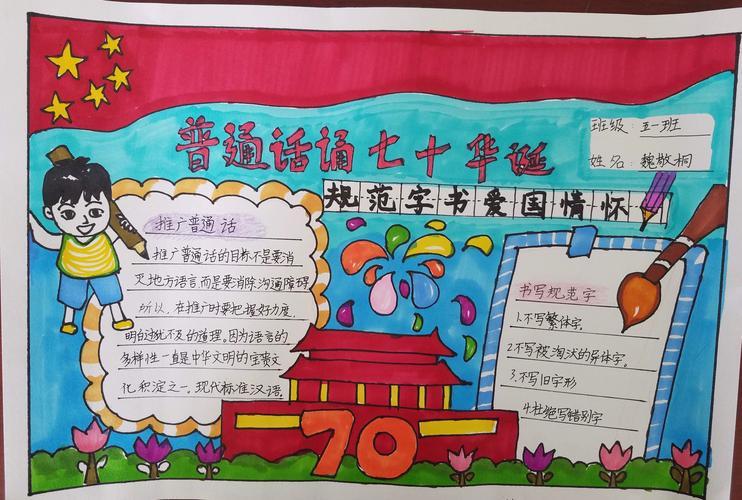 普通话诵七十华诞
规范字书爱国情怀
班级：五一班
姓名：魏敬桐
推广普通话
推广普通话的目标不是要消
灭地方语言而是要消除沟通障碍
所以，在推广时要把握好力度，
明白过犹不及的道理。因为语言的
多样性一直是中华文明的宝贵文
化积淀之一。现代标准汉语。
书写规范字
1.不写繁体字，
2.不写被淘汰的异体字。
3.不写旧字形
4.杜绝写错别字
70